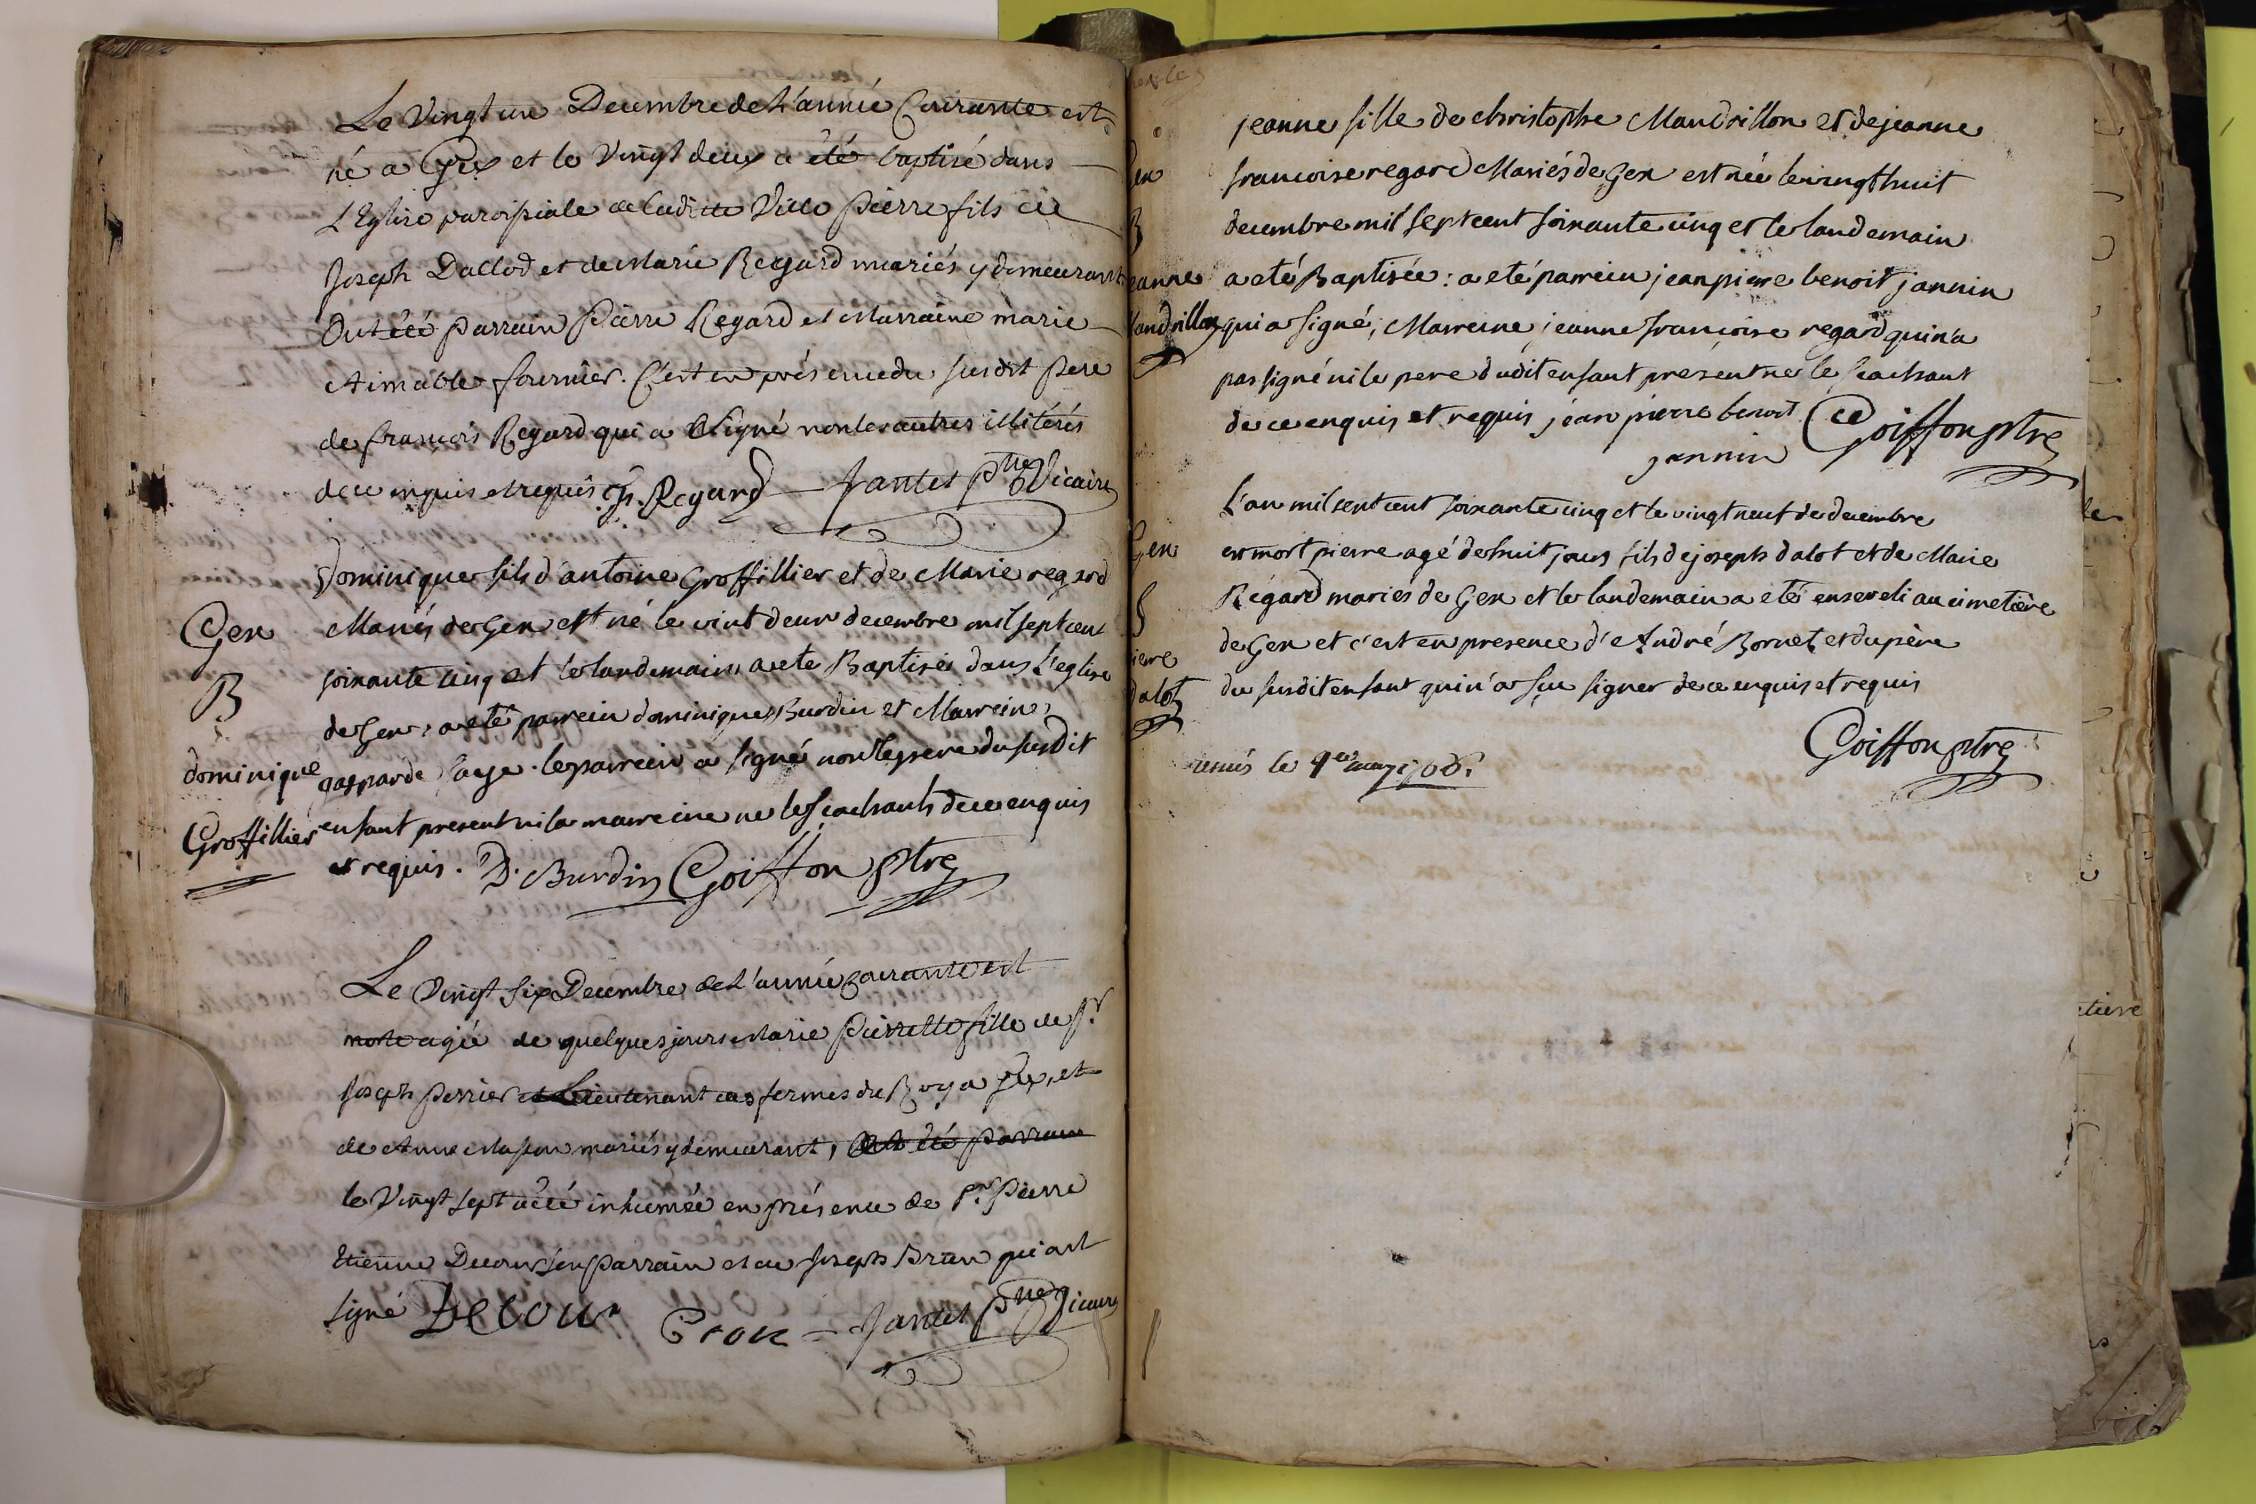 Le Vingt un Decembre de L'année Courante est
né a Gex et le Vingt deux a été baptisé dans
L'Eglise paroissiale de ladite Ville Pierre fils de
Joseph Dallod et de Marie Regard mariés y demeurant
Ont été parrain Pierre Regard et Marraine marie
Aimable fournier. C'est en présence du susdit Pere
de françois Regard qui a Signé non les autres illitérés
de ce enquis et requis. fr. Regard Jantet ptre Vicaire
Gex
B
dominique
Groffillier
Dominique fils d'antoine Groffillier et de Marie regard
Mariés de Gex est né le vint deux decembre mil sept cent
soixante cinq et le landemain a ete Baptisé dans l'eglise
de Gex, a eté parrein dominique Burdin et Marreine
gasparde Sage. le parrein a signé non le pere du susdit
enfant present ni la marreine ne le scachants de ce enquis
et requis. D. Burdin Goiffon ptre
Le Vingt Six Decembre de L'année courante est
morte agée de quelques jours Marie Pierrette fille de Sr
Joseph Perrier et Lieutenant des fermes du Roy a Gex, et
de Anne mariés y demeurant, Ont été Parrain
le Vingt sept a été inhumée en présence de Sr Pierre
Etienne Decour son Parrain et de Joseph Brun qui ont
signé Decour Jantet ptre Vicaire
Gex
B
jeanne
Mandrillon
jeanne fille de christophe Mandrillon et de jeanne
francoise regard Mariés de Gex est née le vingt huit
decembre mil sept cent soixante cinq et le landemain
a eté Baptisée : a eté parrein jean pierre benoit jannin
qui a signé, Marreine jeanne françoise regard qui n'a
pas signé ni le pere dudit enfant present ne le scachant
de ce enquis et requis jean pierre benoit Goiffon ptre
jannin
Gex
S
pierre
dalot
L'an mil sept cent soixante cinq et le vingt neuf de decembre
est mort pierre agé de huit jours fils de joseph dalot et de Marie
Régard mariés de Gex et le landemain a eté enseveli au cimetière
de Gex et c'est en presence d'André Bornet et du père
du susdit enfant qui n'a sçu signer de ce enquis et requis
Goiffon ptre